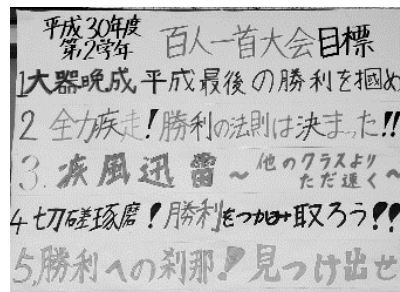 平成30年度
第2学年
百人一首大会目標
1大器晩成 平成最後の勝利を掴め
2 全力疾走!勝利の法則は決まった!!
3. 疾風迅雷〜他のクラスより
ただ速く〜
4 切磋琢磨!勝利をつかみ取ろう!!
5,勝利への刹那!見つけ出せ